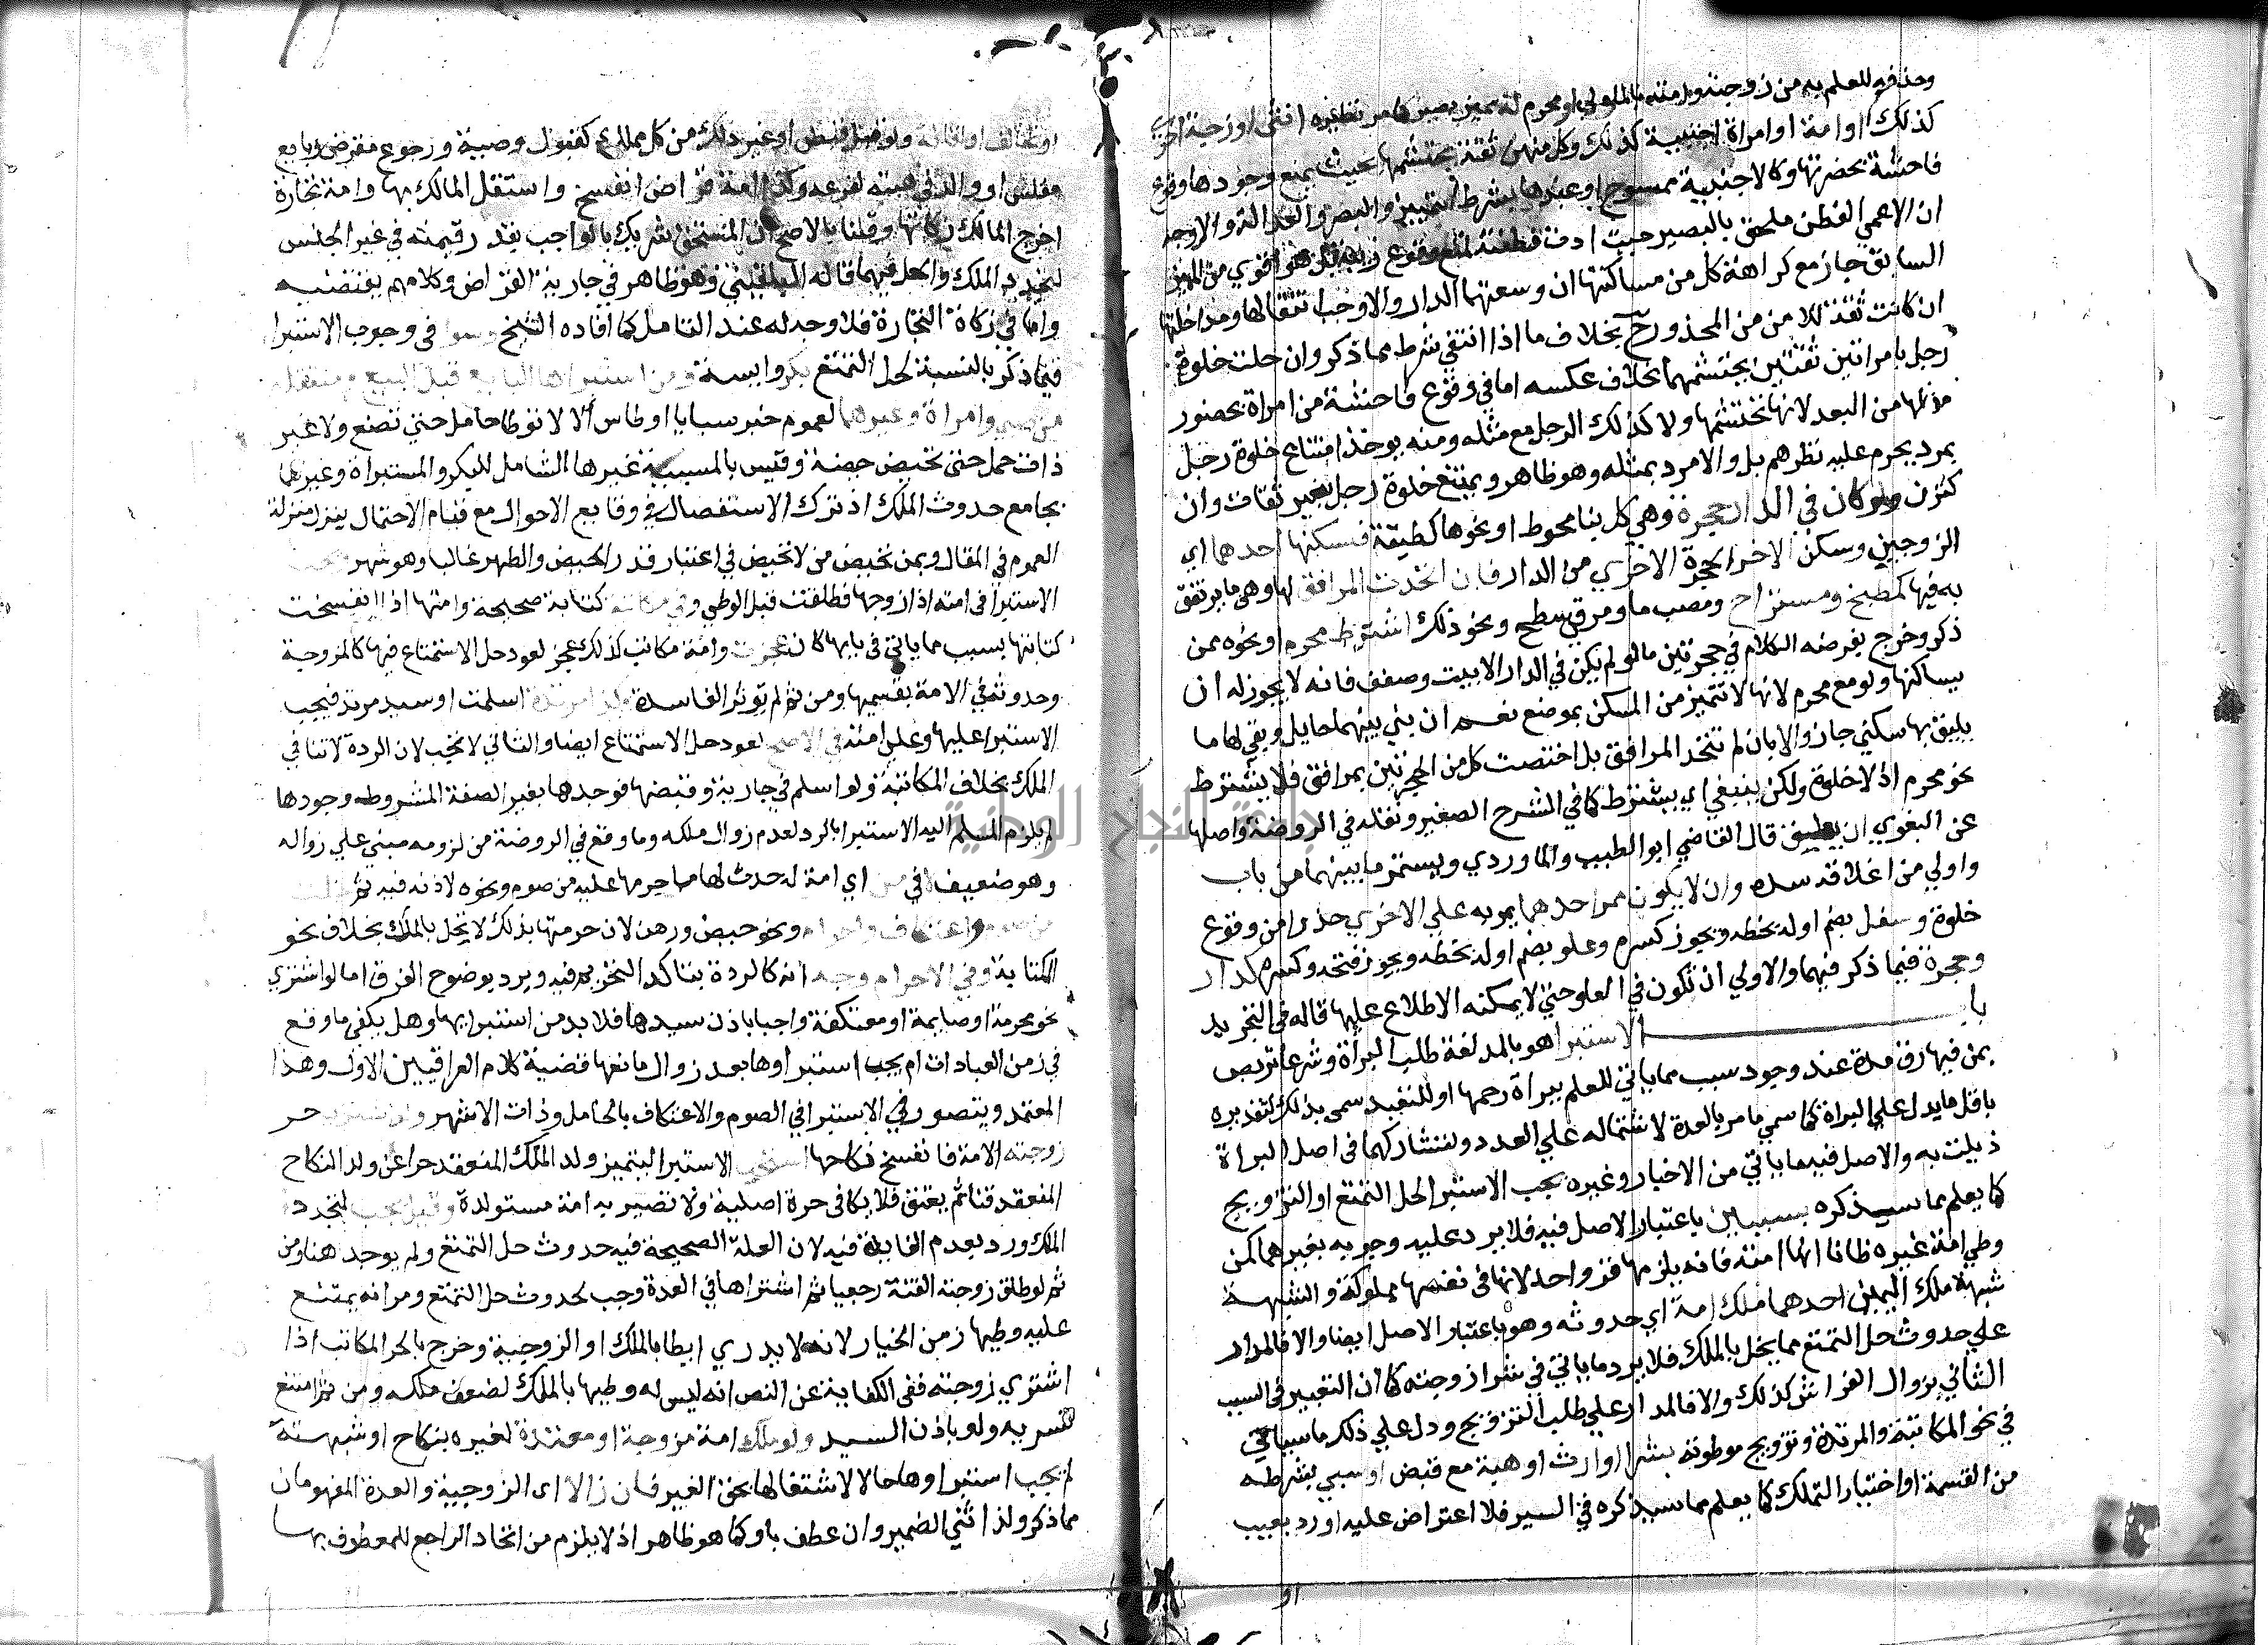 وحذفه للعلم به من زوجته وامته بالملوك او محرم له مميز بصير كما مر نظيره انثى او زوجة اخرى
كذلك او امة او امراة اجنبية كذلك وكل منهن ثقة يحتشمها بحيث يمنع وجودها وقوع
فاحشة بحضرتها وكالاجنبية ممسوح او عبدها بشرط التمييز والبصر والعدالة والاوجه
ان الاعمي الفطن ملحق بالبصير حيث ادت فطنته لمنع وقوع ريبة بل هو اقوي من المميز
السابق جاز مع كراهة كل من مساكنتها ان وسعتهما الدار والا وجب انتقالها ومداخلتها
ان كانت ثقة للامن من المحذور ح بخلاف ما اذا انتفي شرط مما ذكر وان حلت خلوة
رجل بامراتين ثقتين يحتشمهما بخلاف عكسه اما في وقوع فاحشة من امراة بحضور
مثلها من البعد لانها تحتشمها ولا كذلك الرجل مع مثله ومنه يوخذ امتناع خلوة رجل
بمرد يحرم عليه نظرهم بل والامرد بمثله وهو ظاهر ويمتنع خلوة رجل بغير ثقات وان
كثرن ولو كان في الدار حجرة وهي كل بنا محوط او نحوها كطبقة فسكنها احدهما اي
الزوجين وسكن الاخر الحجرة الاخري من الدار فان اتحدت المرافق لها وهي ما يرتفق
به فيها كمطبخ ومستراح ومصب ما ومرقي سطح ونحو ذلك اشترط محرم او نحوه ممن
ذكر وخرج بفرضه الكلام في حجرتين ما لو لم يكن في الدار الا بيت وصفف فانه لا يجوز له ان
يساكنها ولو مع محرم لانها لا تتميز من المسكن بموضع نعم ان بني بينهما حايل وبقي لها ما
يليق بها سكني جاز والا بان لم تتحد المرافق بل اختصت كل من الحجرتين بمرافق فلا يشترط
نحو محرم اذ لا خلوة ولكن ينبغي اي يشترط كما في الشرح الصغير ونقله في الروضة واصلها
عن البغوي ان يغلق قال القاضي ابو الطيب والماوردي ويستمر ما بينهما من باب
واولي من اغلاقه سده وان لا يكون ممر احدهما يمر به علي الاخري حذرا من وقوع
خلوة وسفل بضم اوله بخطه ويجوز كسره وعلو بضم اوله بخطه ويجوز فتحه وكسره كدار
وحجرة فيما ذكر فيهما والاولي ان تكون في العلو حتي لا يمكنه الاطلاع عليها قاله في التجريد
باب الاستبرا هو بالمد لغة طلب البراة وشرعا تربص
بمن فيها رق مدة عند وجود سبب مما ياتي للعلم ببراة رحمها او للتعبد سمي بذلك لتقديره
باقل ما يدل علي البراة كما سمي ما مر بالعدة لاشتماله علي العدد ولتشاركهما في اصل البراة
ذيلت به والاصل فيه ما ياتي من الاخبار وغيره يجب الاستبرا لحل التمتع او التزويج
كما يعلم مما سيذكره بسببين باعتبار الاصل فيه فلا يرد عليه وجوبه بغيرهما كمن
وطي امة غيره ظانا انها امته فانه يلزمها قرو واحد لانها في نفسها مملوكة والشبهة
شبهة ملك اليمين احدهما ملك امة اي حدوثه وهو باعتبار الاصل ايضا والا فالمدار
علي حدوث حل التمتع مما يخل بالملك فلا يرد ما ياتي في شرا زوجته كما ان التعبير في السبب
الثاني بزوال الفراش كذلك والا فالمدار علي طلب التزويج ودل علي ذلك ما سياتي
في نحو المكاتبة والمرتدة وتزويج موطوته بشرا او ارث او هبة مع قبض او سبي بشرطه
من القسمة او اختيار التملك كما يعلم مما سيذكره في السير فلا اعتراض عليه او رد بعيب
او
او تحالف او اقالة ولو قبل قبض او غير ذلك من كل مملك كقبول وصية ورجوع مقرض وبايع
مفلس او والد في هبته لفرعه وكذا امة قراض انفسخ واستقل المالك بها وامة تجارة
اخرج المالك زكاتها وقلنا بالاصح ان المستحق شريك بالواجب بقدر قيمته في غير الجنس
لتجدد الملك والحل فيهما قاله البلقيني وهو ظاهر في جارية القراض وكلامهم يقتضيه
واما في زكاة التجارة فلا وجه له عند التامل كما افاده الشيخ وسوا في وجوب الاستبرا
فيما ذكر بالنسبة لحل التمتع بكر وايسة ومن استبراها البايع قبل البيع ومنتقلة
من صبي وامراة وغيرهما لعموم خبر سبايا اوطاس الا لا توطا حامل حتي تضع ولا غير
ذات حمل حتي تحيض حيضة وقيس بالمسبية غيرها الشامل للبكر والمستبراة وغيرهما
بجامع حدوث الملك اذ ترك الاستفصال في وقايع الاحوال مع قيام الاحتمال ينزل منزلة
العموم في المقال وبمن تحيض من لا تحيض في اعتبار قدر الحيض والطهر غالبا وهو شهر ويجب
الاستبرا في امته اذا زوجها فطلقت قبل الوطي وفي مكاتبة كتابة صحيحة وامتها اذا انفسخت
كتابتها بسبب مما ياتي في بابها كان عجزت وامة مكاتب كذلك عجز لعود حل الاستمتاع فيها كالمزوجة
وحدوثه في الامة بقسميها ومن ثم لم تؤثر الفاسدة وكذا مرتدة اسلمت او سيد مرتد فيجب
الاستبرا عليها وعلي امته في الاصح لعود حل الاستمتاع ايضا والثاني لا يجب لان الردة لا تنافي
الملك بخلاف المكاتبة ولو اسلم في جارية وقبضها فوجدها بغير الصفة المشروطه وجودها
لم يلزم المسلم اليه الاستبرا بالرد لعدم زوال ملكه وما وقع في الروضة من لزومه مبني علي زواله
وهو ضعيف لا في من اي امة له حدث لها ما حرمها عليه من صوم ونحوه لاذنه فيه ثم حلت
من صوم واعتكاف واحرام ونحو حيض ورهن لان حرمتها بذلك لا يخل بالملك بخلاف نحو
الكتابة وفي الاحرام وجه انه كالردة بتاكد التحريم فيه ويرد بوضوح الفرق اما لو اشتري
نحو محرمة او صايمة او معتكفة واجبا باذن سيدها فلا بد من استبرايها وهل يكفي ما وقع
في زمن العبادات ام يجب استبراوها بعد زوال مانعها قضية كلام العراقيين الاول وهذا
المعتمد ويتصور في الاستبرا في الصوم والاعتكاف بالحامل وذات الاشهر ولو اشتري حر
زوجته الامة فانفسخ نكاحها استحب الاستبرا ليتميز ولد الملك المنعقد حرا عن ولد النكاح
المنعقد قنا ثم يعتق فلا يكافي حرة اصلية ولا تصير به امة مستولدة وقيل يجب لتجدد
الملك ورد بعدم الفايدة فيه لان العلة الصحيحة فيه حدوث حل التمتع ولم يوجد هنا ومن
ثم لو طلق زوجته القنة رجعيا ثم اشتراها في العدة وجب لحدوث حل التمتع ومر انه يمتنع
عليه وطيها زمن الخيار لانه لا يدري ايطا بالملك او الزوجية وخرج بالحر المكاتب اذا
اشتري زوجته ففي الكفاية عن النص انه ليس له وطيها بالملك لضعف ملكه ومن ثم امتنع
تسريه ولو باذن السيد ولو ملك امة مزوجة او معتدة لغيره بنكاح او شبهته
لم يجب استبراوها حالا لاشتغالها بحق الغير فان زالا اي الزوجية والعدة المفهومان
مما ذكر ولذا ثني الضمير وان عطف باو كما هو ظاهر اذ لا يلزم من اتحاد الراجع للمعطوف بها
جامعة النجاح الوطنية